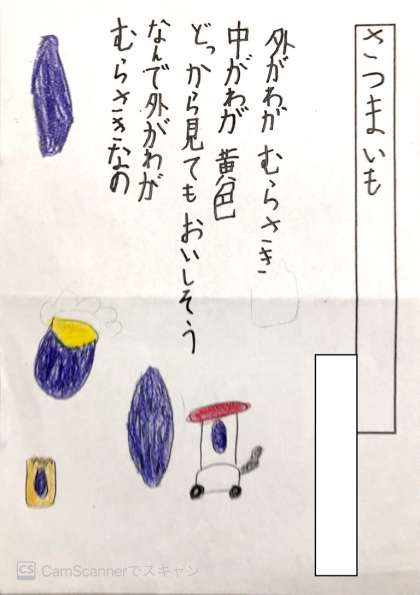 さつまいも
外がわが むらさき
中がわが 黄色
どっから見ても おいしそう
なんで外がわが
むらさきなの
CS CamScannerでスキャン